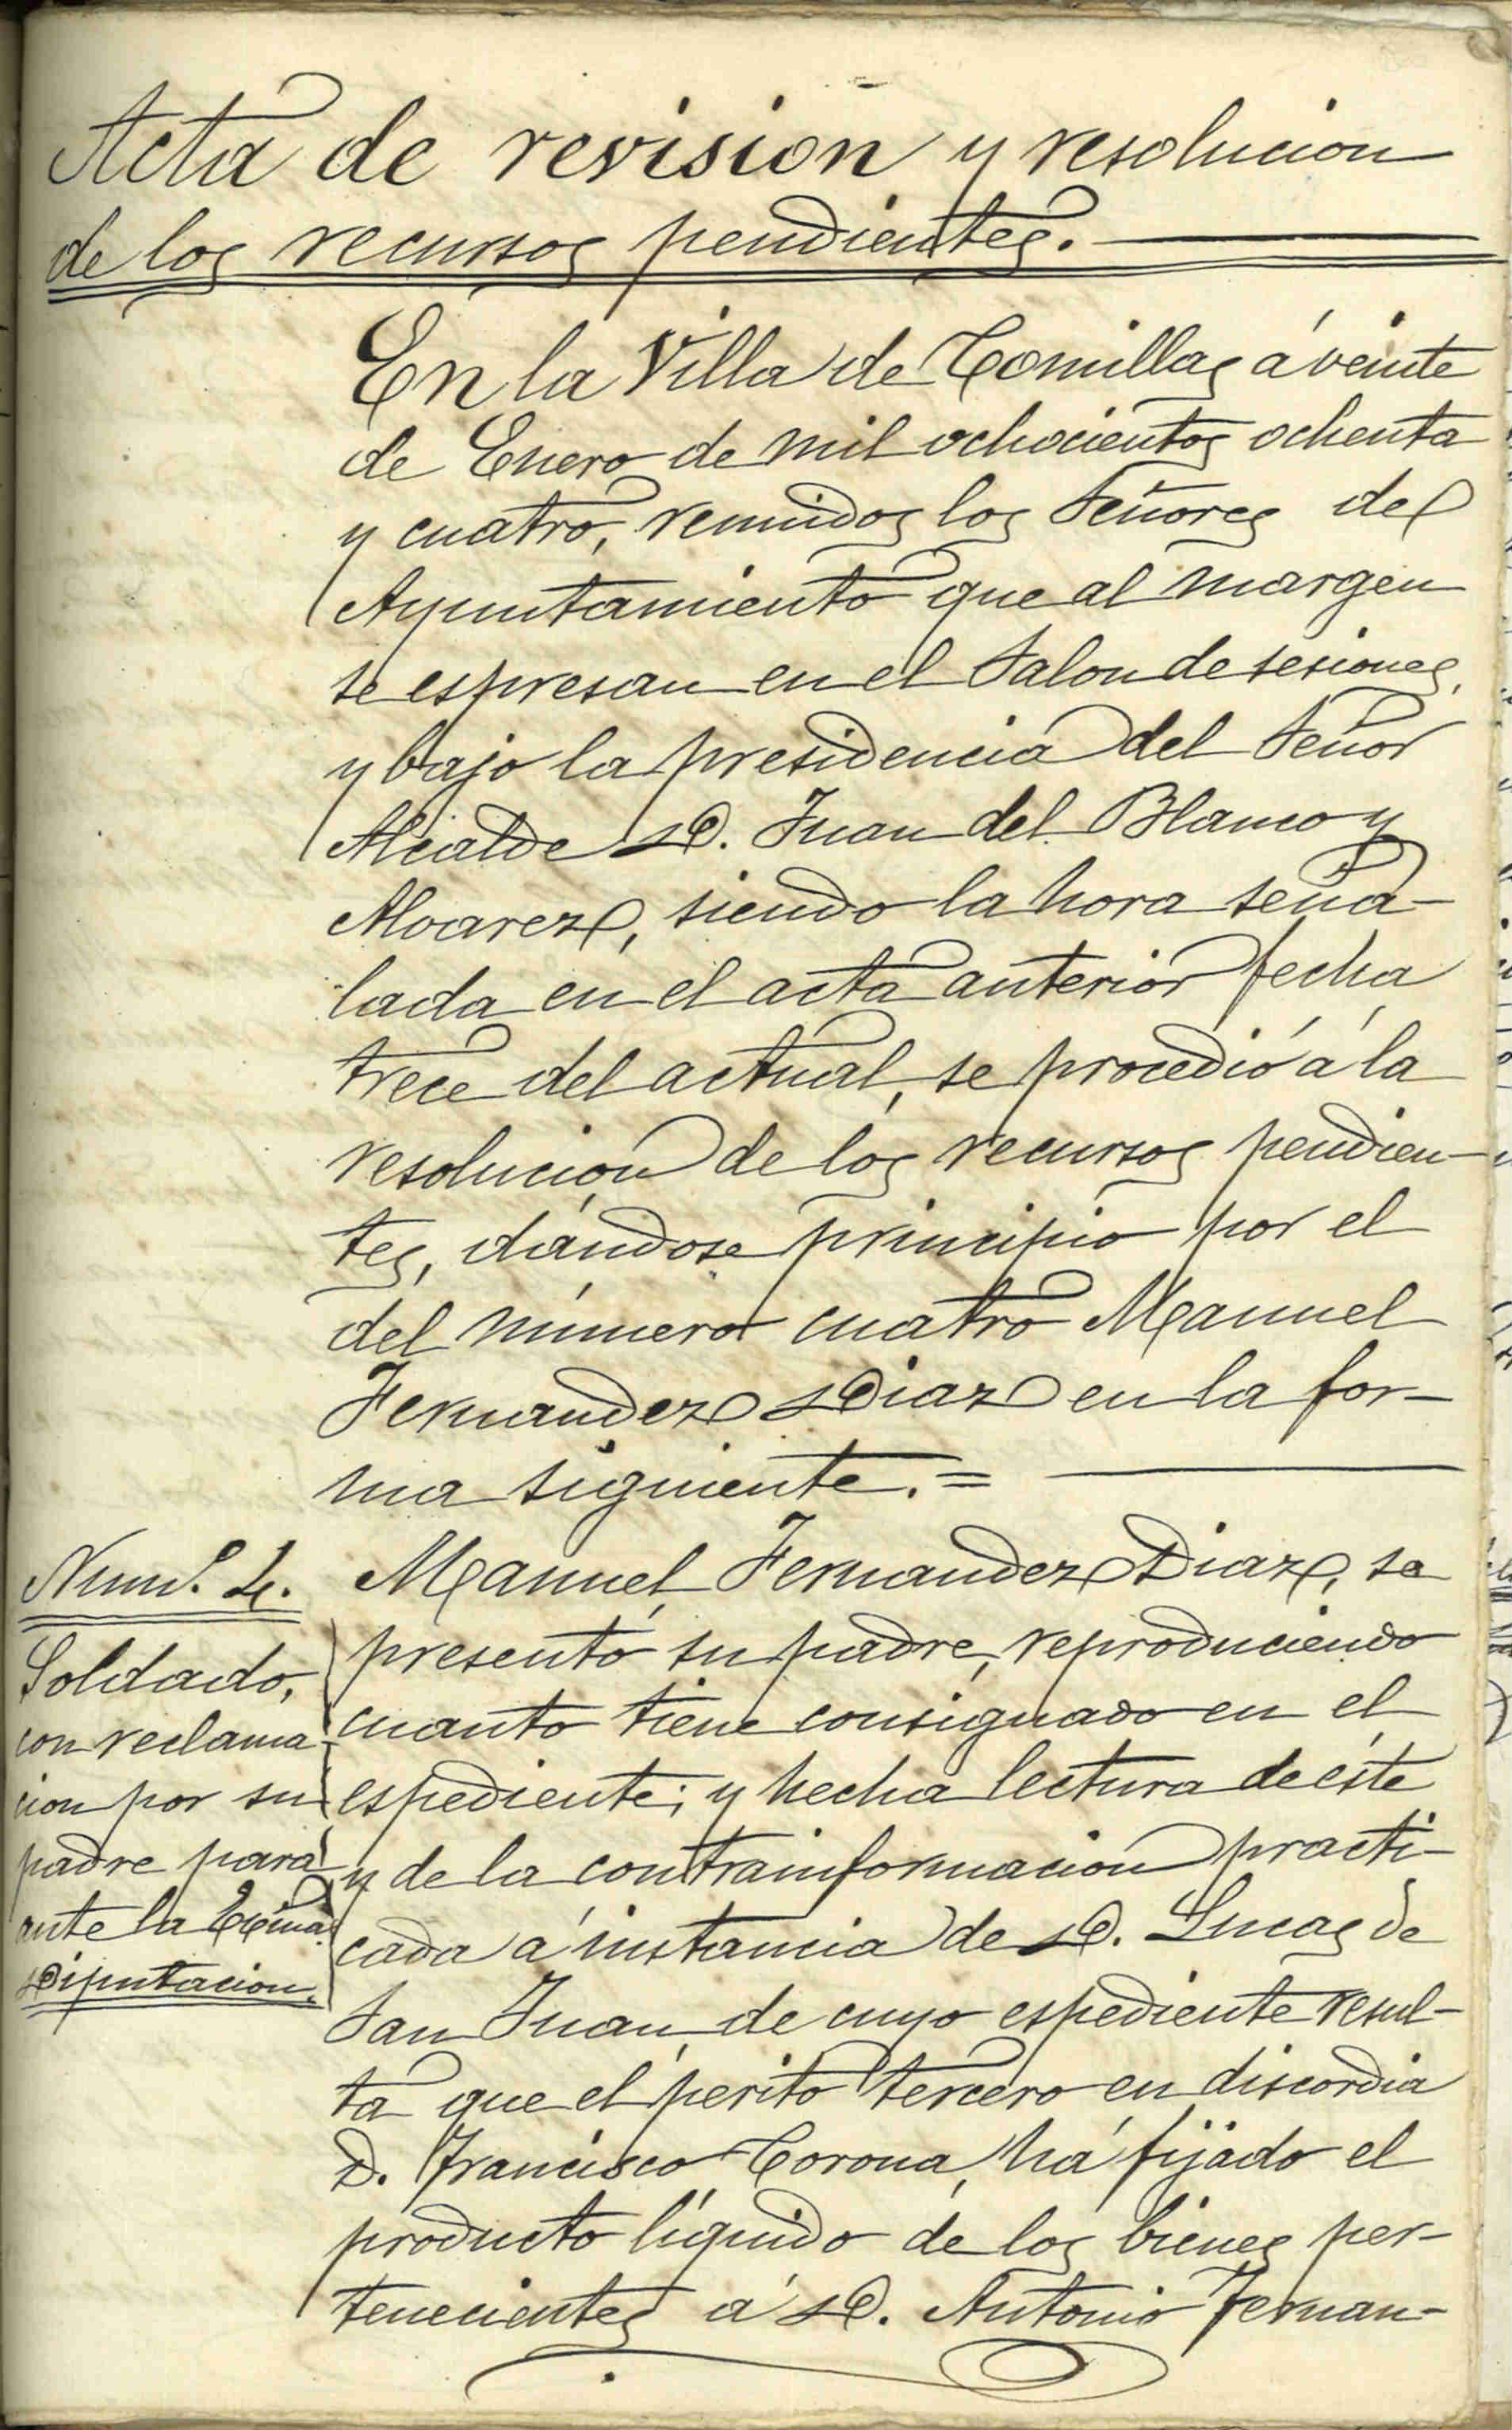 Acta de revision y resolucion
de los recursos pendientes.
En la Villa de Comillas á veinte
de Enero de mil ochocientos ochenta
y cuatro, reunidos los Señores del
Ayuntamiento que al margen
se espresan en el Salon de sesiones,
y bajo la presidencia del Señor
Alcalde D. Juan del Blanco y
Alvarez, siendo la hora seña-
lada en el acta anterior fecha
trece del actual, se procedió á la
resolucion de los recursos pendien-
tes, dándose principio por el
del número cuatro Manuel
Fernandez Diaz en la for-
ma siguiente.=
Num.º 4.
Soldado,
con reclama-
cion por su
padre para
ante la Exma.
Diputacion.
Manuel Fernandez Diaz, se
presentó su padre, reproduciendo
cuanto tiene consignado en el
espediente; y hecha lectura de éste
y de la contrainformacion practi-
cada á instancia de D. Lucas de
San Juan, de cuyo espediente resul-
ta que el perito tercero en discordia
D. Francisco Corona, há fijado el
producto líquido de los bienes per-
tenecientes á D. Antonio Fernan-